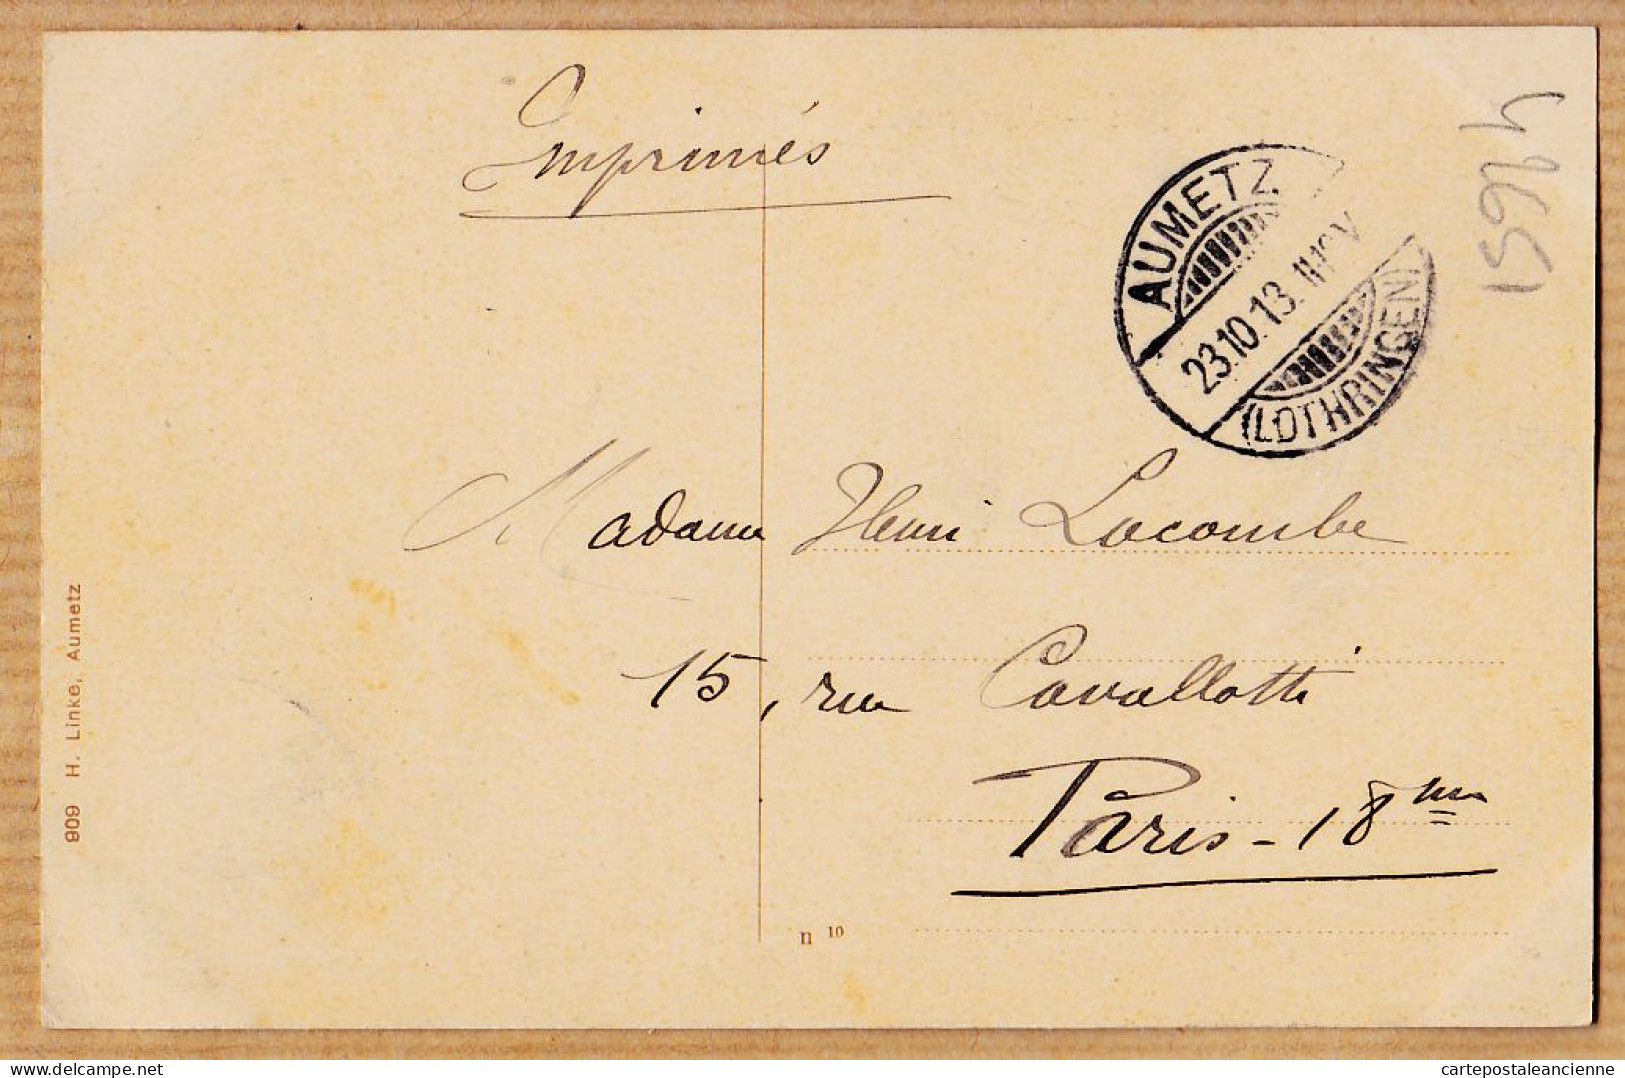 Imprimés
AUMETZ
23.10.13. 11-12 V
(LOTHRINGEN)
Madame Henri Lacombe
15, rue Cavallotti
Paris - 18me
909 H. Linke, Aumetz
n 10
cartepostaleancienne
www.delcampe.net